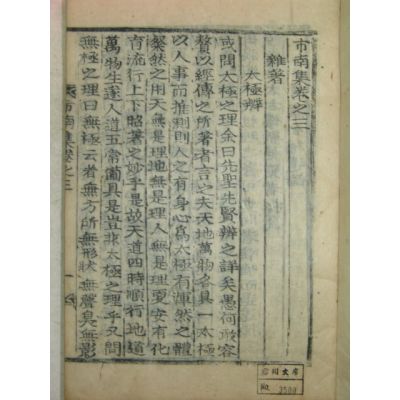 市南集卷之三
雜著
太極辨
或問太極之理余曰先聖先賢辨之詳矣愚何敢容
贅以經傳之所著者言之夫天地萬物各具一太極
以人事而推測則人之有身心爲太極有渾然之體
粲然之用天無是理地無是理人無是理更安有化
育流行上下昭著之妙乎是故天道四時順行地道
萬物生遂人道五常備具是豈非太極之理乎又問
無極之理曰無極云者無方所無形狀無聲臭無影
市南集卷之三
一
文庫
NO.